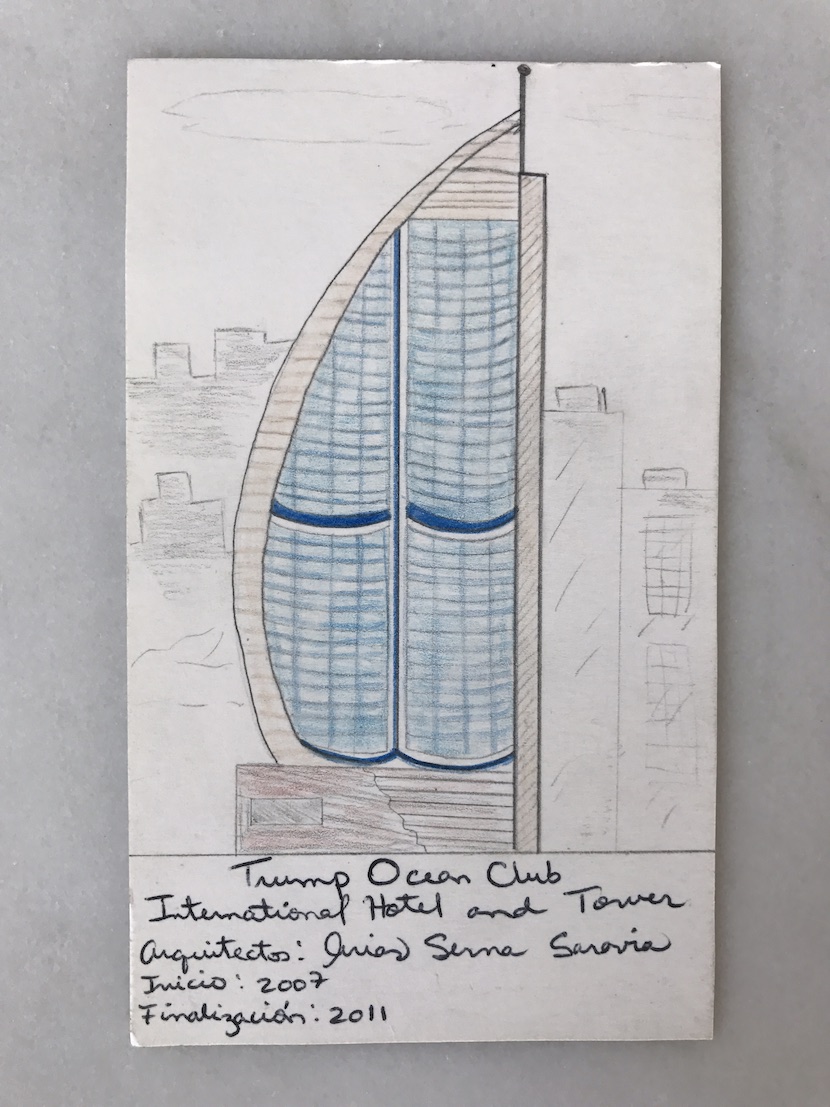 Trump Ocean Club
International Hotel and Tower
Arquitectos: Arias Serna Saravia
Inicio: 2007
Finalización: 2011